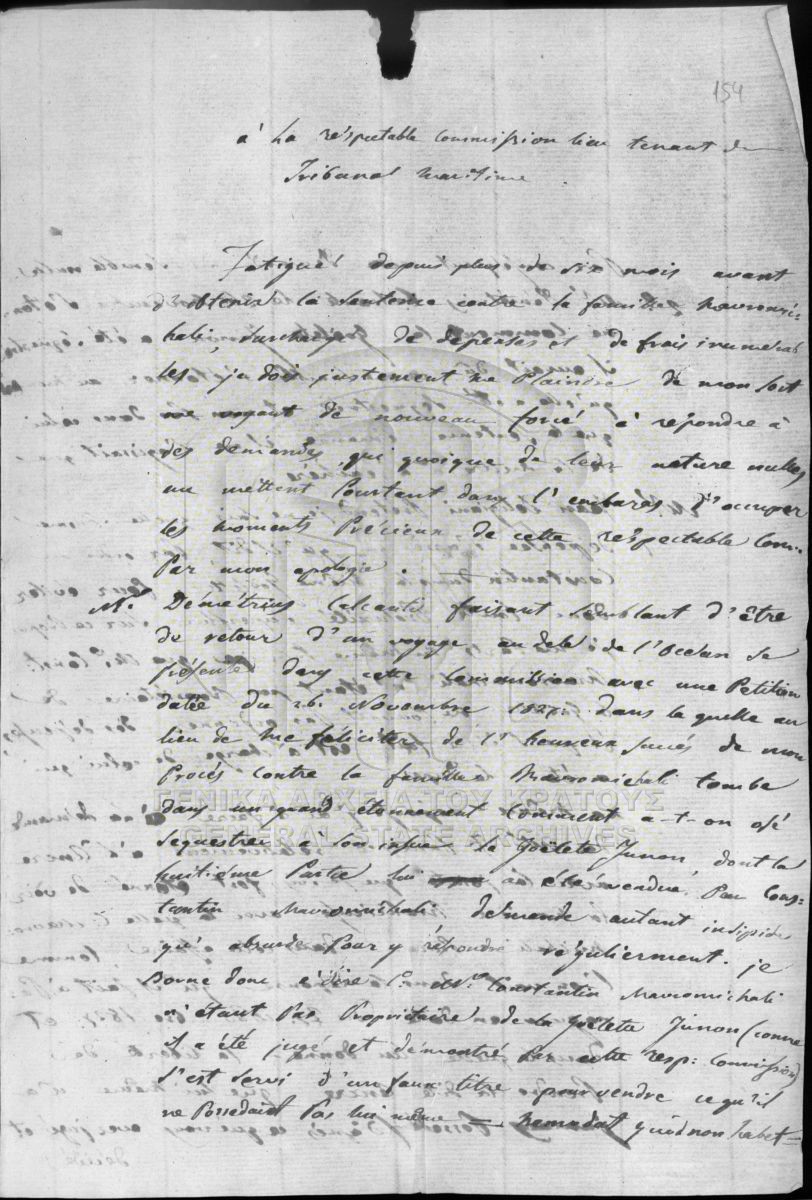 154
a' La réspectable Commission lieu tenant du
Tribunal Maritime
Fatigué depuis plus de six mois avant
d'obtenir la sentence contre la famille Mavromi-
hali, surchargé de depenses et de frais inumerab
les, j'a dois justement me Plaindre de mon sort
me voyant de nouveau forcé à répondre à
des demandes qui quoique de leur nature nulles
me mettent Pourtant dans l'embaras d'occuper
les moments Précieux de cette respectable Com.
Par mon apologie.
Mr Démétrius Calcauti faisant semblant d'être
de retour d'un voyage au dela de l'Ocean se
présente dans cette Commission avec une Petition
datée du 26. Novembre 1827: dans la quelle au
lieu de me féliciter de l' heureux succés de mon
Procés contre la famille Mavromichali tombe
dans un grand étonnement comment a-t-on osé
sequestrer à son insue la Goëlete Junon, dont la
huitieme Partie lui a été vendue Par Cons-
tantin Mavromichali demande autant insipide
qu' absurde Pour y répondre réguliérement. je
Borne donc à dire Mr Constantin Mavromichali
n'étant Pas Proprietaire de la Goëlete Junon (comme
il a été jugé et démontré Par cette resp: Commission)
s'est servi d'un faux titre pour vendre ce qu'il
ne Possedait Pas lui même = Nemo dat quid non habet =
ΓΕΝΙΚΑ ΑΡΧΕΙΑ ΤΟΥ ΚΡΑΤΟΥΣ
GENERAL STATE ARCHIVES